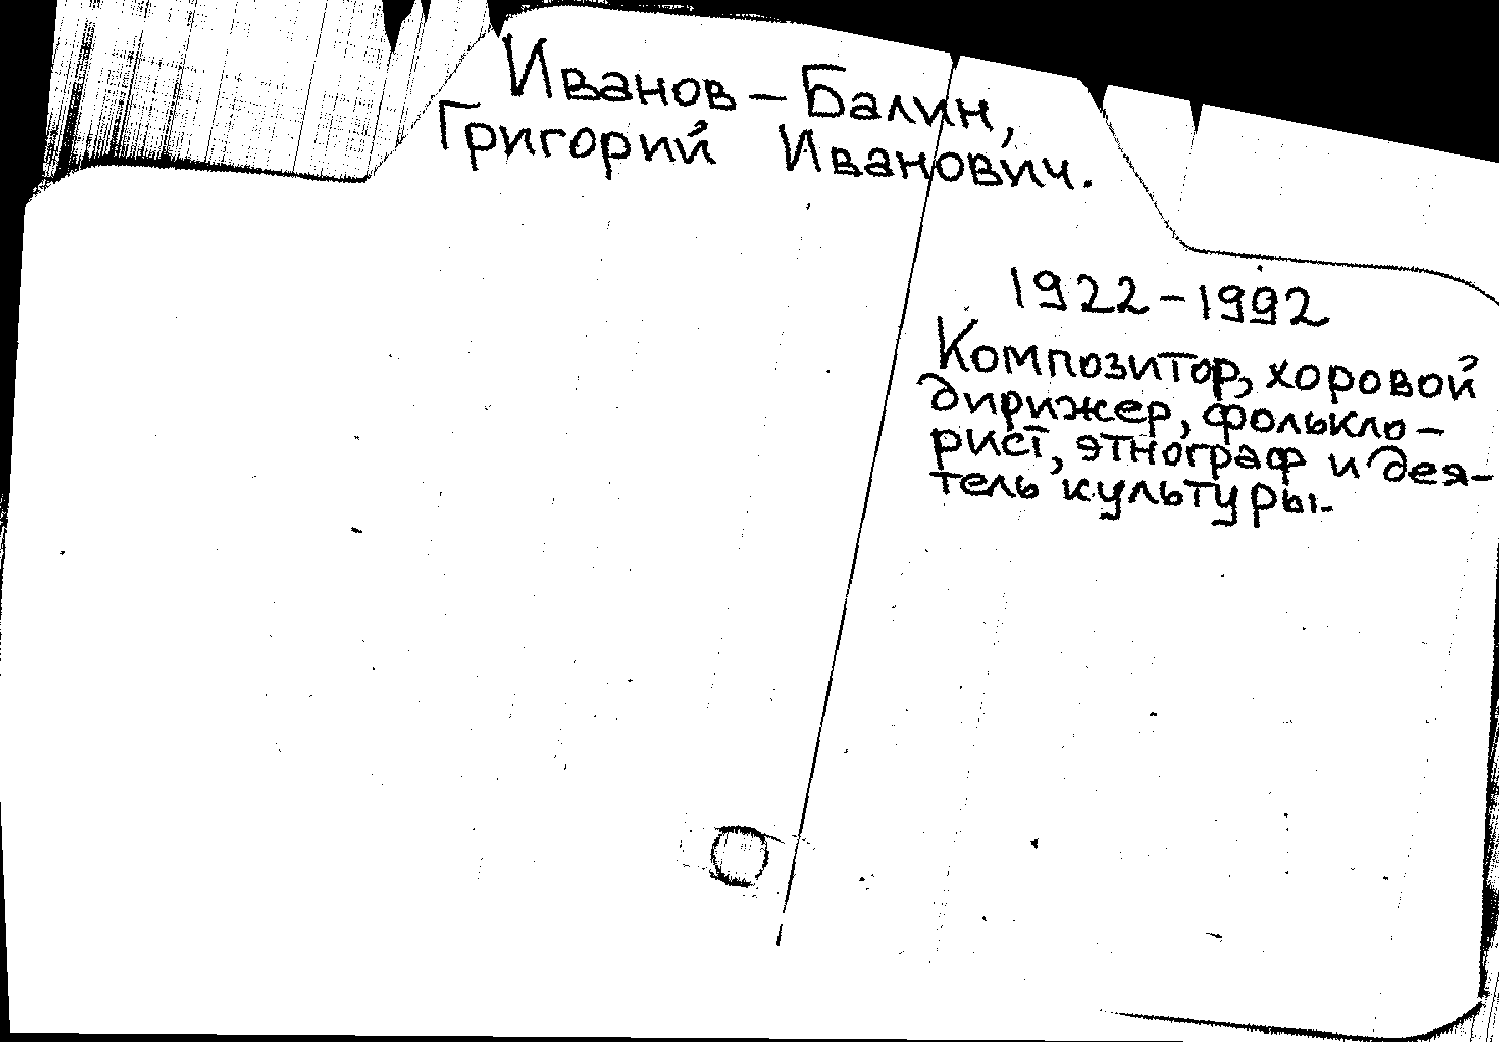 Иванов – Балин,
Григорий Иванович.
1922 – 1992
Композитор, хоровой
дирижер, фолькло –
рист, этнограф и дея –
тель культуры.